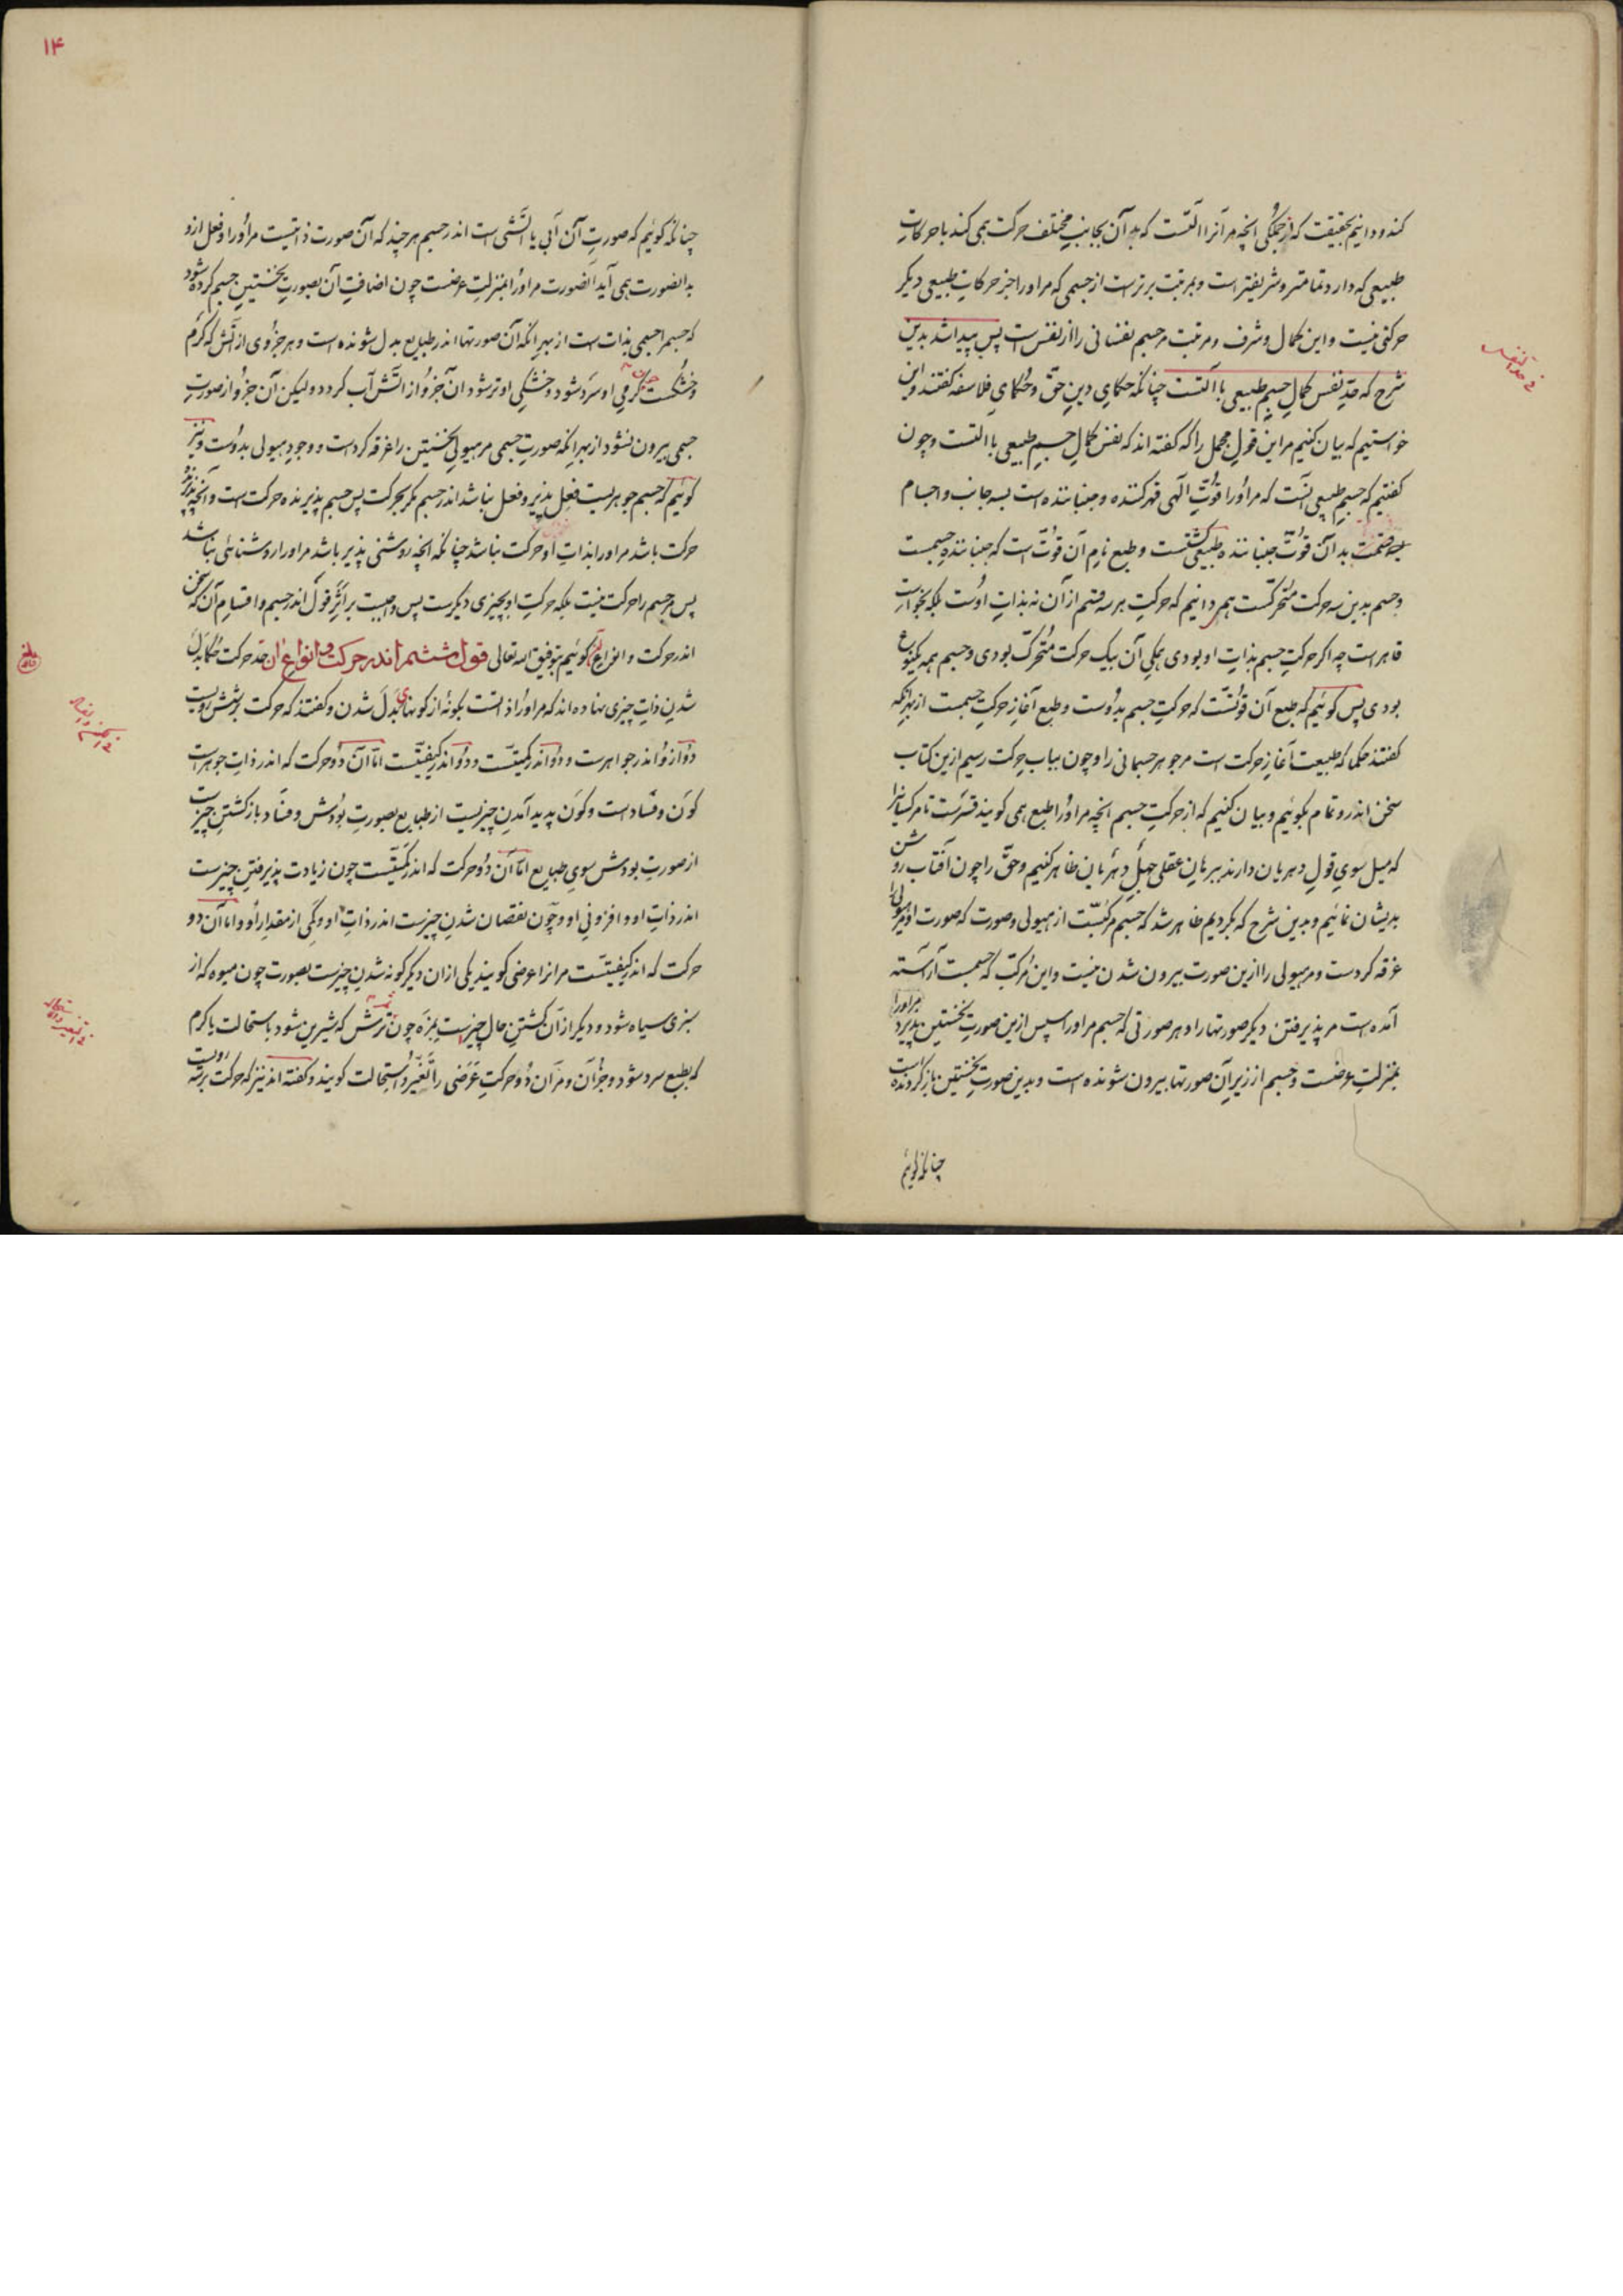 کند و دانیم بحقیقت که از جملگی انچه مر آنرا آلتست که بدان آن بجانب مختلف حرکت همی کند با حرکات
طبیعی که دارد تمامتر و شریفتر است و بمرتبت برترست از جسمی که مر اورا جز حرکات طبیعی دیگر
حرکتی نیست و این کمال و شرف و مرتبت مر جسم نفسانی را از نفس است پس پیدا شد بدین
شرح که حدّ نفس کمالِ جسمِ طبیعی با آلتست چنانکه حکمای دینِ حقّ و حکمای فلاسفه گفتند و این
خواستیم که بیان کنیم مر این قول مجمل را که گفته اند که نفس کمالِ جسمِ طبیعی با التست و چون
گفتیم که جسمِ طبیعی آنست که مر اورا قوّتِ الهی قهر کننده و جنباننده است بسه جانب و اجسام
بدان قوّت جنباننده طبیعی گشتست و طبع نامِ آن قوّت است که جنبانندهِ جسمست
و جسم بدین سه حرکت متحرّکست همی دانیم که حرکتِ بر سه قسم از آن نه بذاتِ اوست بلکه بخواستِ
قاهرست چه اگر حرکتِ جسم بذاتِ او بودی همگیِ آن بیک حرکت متحرّک بودی و جسم همه یکنوع
بودی پس گوئیم که طبع آن قوّتست که حرکتِ جسم بدوست و طبع آغازِ حرکتِ جسمست از بهر آنکه
گفتند حکما که طبیعت آغازِ حرکت است مر جوهر جسمانی را و چون بباب حرکت رسیم ازین کتاب
سخن اندرو تمام بگوئیم و بیان کنیم که از حرکتِ جسم انچه مر اورا طبع همی گویند قسرست تا مر کسانیرا
که میل سویِ قولِ دهریان دارند ببرهانِ عقلی جهلِ دهریان ظاهر کنیم و حقّ را چون آفتاب روشن
بدیشان نمائیم و بدین شرح که بکردیم ظاهر شد که جسم مرکّبست از هیولی و صورت که صورت او مر هیولی را
غرقه کردست و مر هیولی را ازین صورت بیرون شدن نیست و این مرکّب که جسمست آراسته
آمده است مر پذیرفتن دیگر صورتها را و هر صورتی که جسم مر اورا سپس ازین صورتِ نخستین بپذیرد مر اورا
بمنزلتِ عرضست و جسم از زیرِ آن صورتها بیرون شونده است و بدین صورتِ نخستین باز گردنده است
چنانکه گوئیم
فی حدّ النفس
۱۴
چنانکه گوئیم که صورتِ آن آبی یا آتشی است اندر جسم هر چند که آن صورت ذاتیست مر اورا و فعل ازو
بدانصورت همی آید آنصورت مر اورا بمنزلتِ عرضست چون اضافتِ آن بصورتِ نخستینِ جسم کرده شود
که جسم را جسمی بذات است از بهر آنکه آن صورتها اندر طبایع بدل شونده است و هر جزوی از آتش که گرم
و خشکست چون گرمیِ او سرد شود و خشکیِ او تر شود آن جزو از آتش آب گردد و لیکن آن جزو از صورتِ
جسمی بیرون نشود از بهر آنکه صورتِ جسمی مر هیولی نخستین را غرقه کردست و وجودِ هیولی بدوست و نیز
گوئیم که جسم جوهریست فعل پذیر و فعل نباشد اندر جسم مگر بحرکت پس جسم پذیرنده حرکت است و آنچه پذیرندهٔ
حرکت باشد مر اورا بذاتِ او حرکت نباشد چنانکه انچه روشنی پذیر باشد مر اورا روشنائی نباشد
پس مر جسم را حرکت نیست بلکه حرکتِ او بچیزی دیگرست پس واجبست بر اثرِ قول اندر جسم و اقسامِ آن که سخن
اندر حرکت و انواع آن گوئیم بتوفیق الله تعالی قول ششم اندر حرکت و انواع آن حدّ حرکت حکما بدل
شدنِ ذاتِ چیزی نهاده اند که مر اورا ذاتست بگونهٔ از گونهای بدل شدن و گفتند که حرکت بر شش رویست
دو ازو اندر جواهرست و دو اندر کمیّتست و دو اندر کیفیّتست امّا آن دو حرکت که اندر ذاتِ جوهر است
کون و فسادست و کون پدید آمدنِ چیزیست از طبایع بصورتِ بودش و فساد باز گشتنِ چیزیست
از صورتِ بودش سویِ طبایع امّا آن دو حرکت که اندر کمیّتست چون زیادت پذیرفتنِ چیزست
اندر ذاتِ او و افزونیِ او و چون نقصان شدنِ چیزست اندر ذاتِ او و کمی از مقدارِ او و امّا آن دو
حرکت که اندر کیفیّتست مر آنرا عرضی گویند یکی از آن دیگر گونه شدنِ چیزست بصورت چون میوه که از
سبزی سیاه شود و دیگر از آن گشتنِ حالِ چیزست بمزه چون ترش که شیرین شود باستحالت یا گرم
که بطبع سرد شود و جز آن و مر آن دو حرکتِ عرضی را تغیّر و استحالت گویند و گفته اند نیز که حرکت بر سه رویست